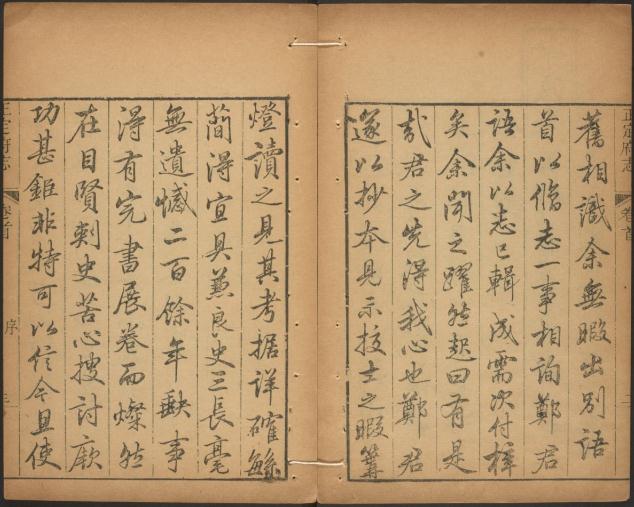 正定府志
卷首
舊相識余無暇出別語
首以脩志一事相詢鄭君
語余以志已輯成需次付梓
矣余聞之躍然起曰有是
哉君之先得我心也鄭君
遂以抄本見示校士之暇篝
燈讀之見其考据詳確繇
簡得宜具兼良史三長毫
無遺憾二百餘年缺事
得有完書展卷而燦然
在目賢刺史苦心搜討厥
功甚鉅非特可以信今且使
正定府志
卷首
序